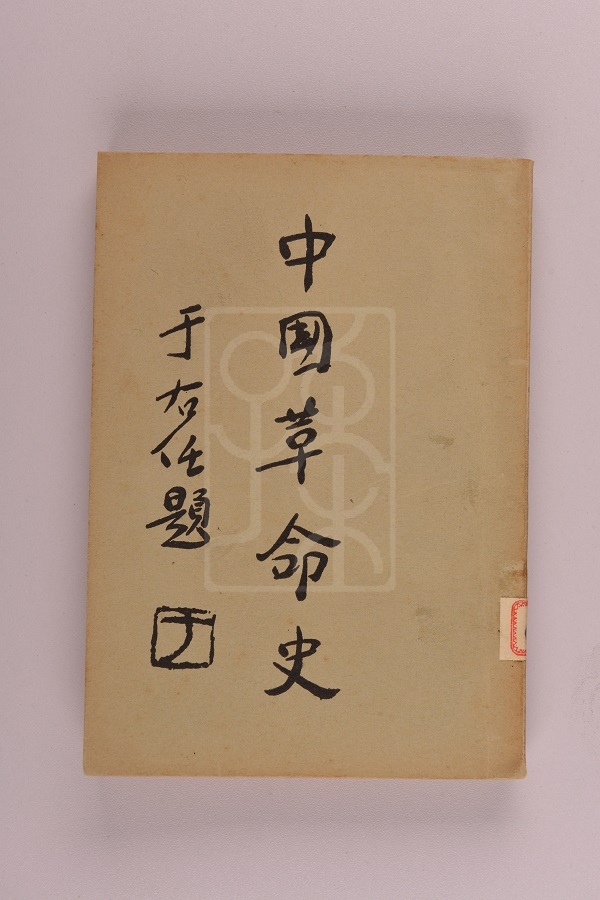 中國革命史
于右任題
于